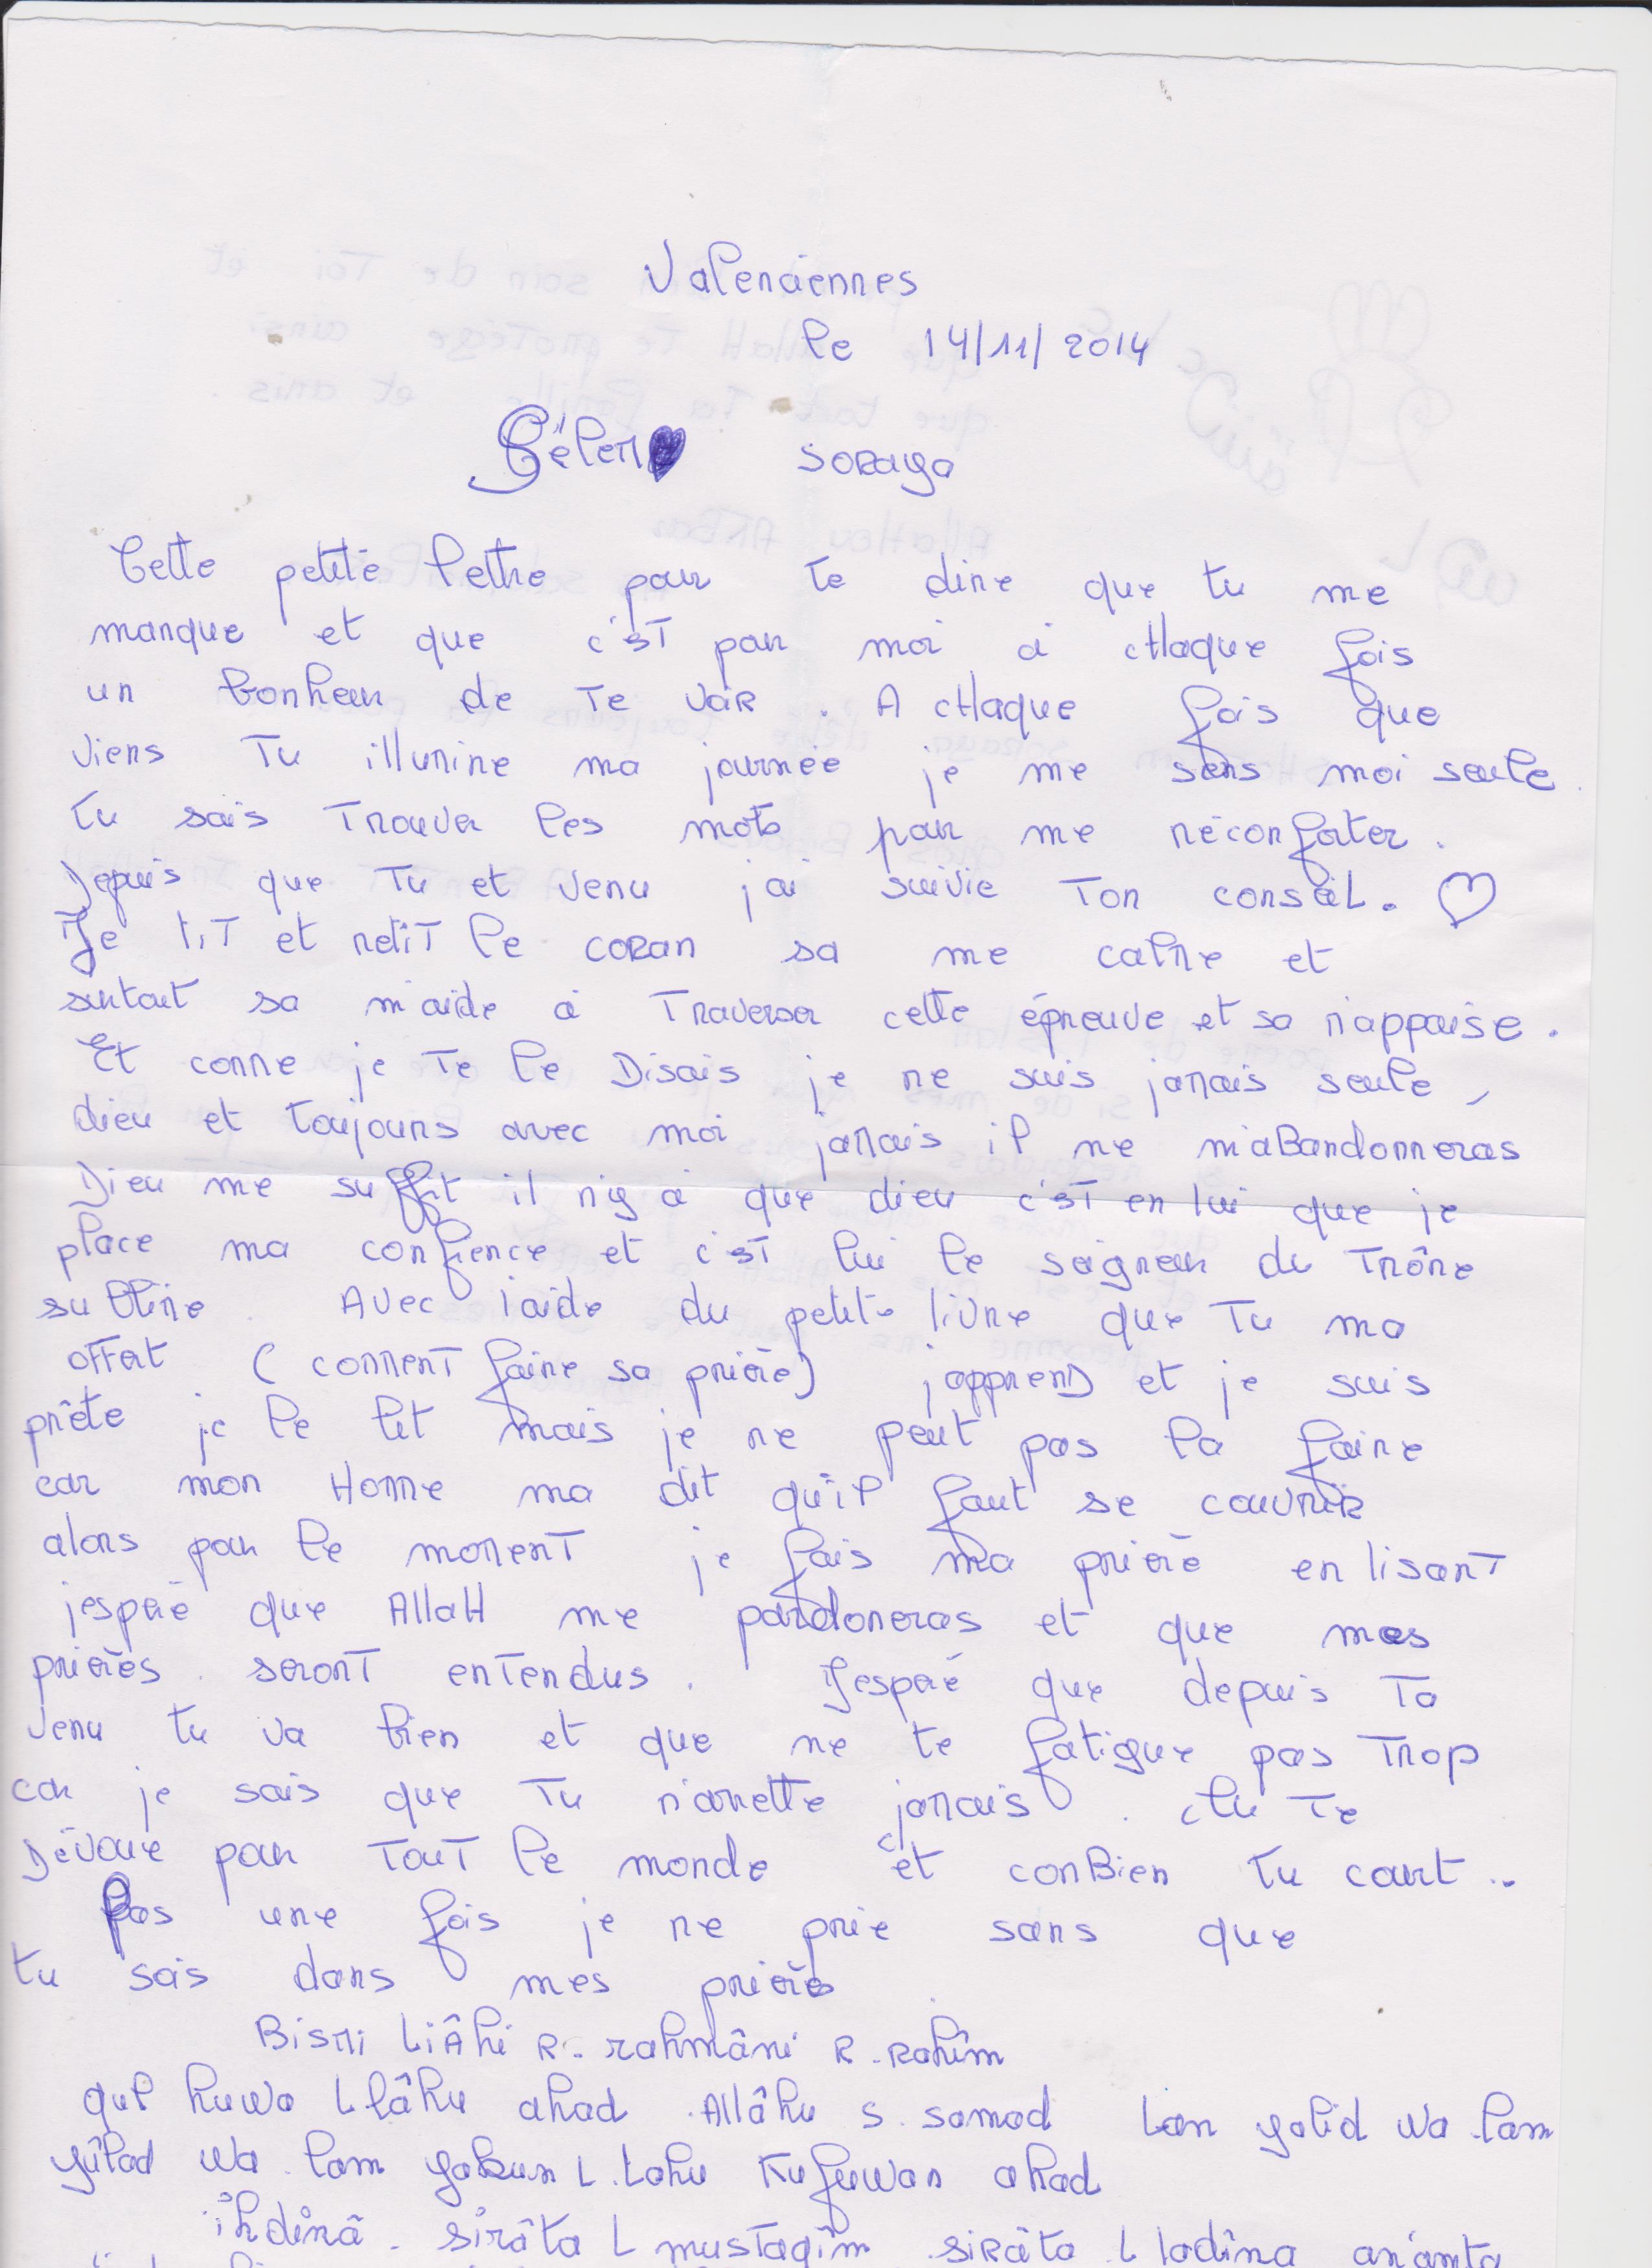 Valenciennes
le 14/11/2014
Sélem soraya
Cette petite lettre pour te dire que tu me
manque et que c'est pour moi a chaque fois
un bonheur de te voir . A chaque fois que
viens tu illumine ma journée je me sens moi seule .
tu sais trouver les mots pour me réconforter .
Depuis que tu et venu j'ai suivie ton conseil .
Je lit et relit le coran sa me calme et
surtout sa m'aide a traverser cette épreuve et sa m'appaise .
Et comme je te le Disais je ne suis jamais seule ,
dieu et toujours avec moi jamais il ne m'aBandonneras
Dieu me suffit il n'y a que dieu c'est en lui que je
place ma confience et c'est lui le seigneur du Trône
sublime . Avec l'aide du petit livre que tu ma
offert ( comment faire sa prière ) j'apprend et je suis
prête je le lit mais je ne peut pas la faire
car mon Homme ma dit qu'il faut se couvrir
alors pour le moment je fais ma prière en lisant
j'espère que AllaH me pardoneras et que mes
prières . seront entendus . J'espère que depuis ta
venu tu va bien et que ne te fatigue pas trop
car je sais que tu n'arrette jamais . tu te
Dévoue pour tout le monde et comBien tu court ..
Pas une fois je ne prie sans que
tu sois dans mes prières .
Bismi LiÂhi R. rahmâni R. Rahîm
qul huwa Llâhu ahad . Allâhu s. samad Lam yalid wa lam
yûlad wa . lam yakun L . lahu Kufuwan ahad
ihdinâ . sirâta L mustaqîm . siRâta . L ladîna an'amta